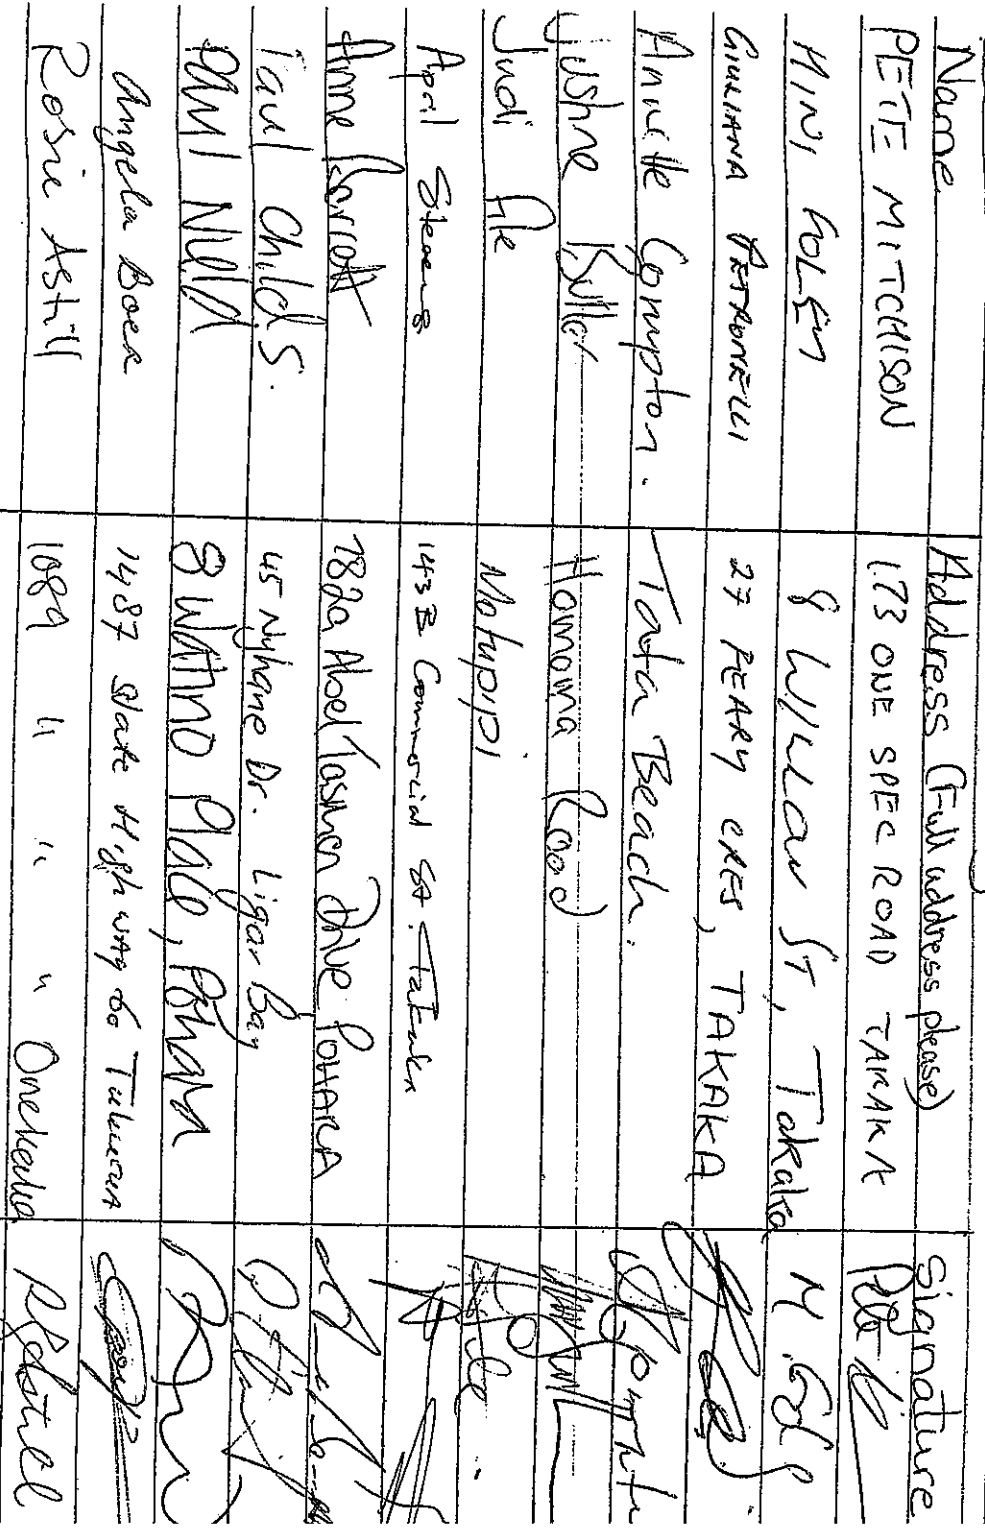 Name Address (Full address please) Signature
PETE MITCHISON 173 ONE SPEC ROAD TAKAKA
MINI GOLEM 8 Willow St, Takaka M. Gol
GIULIANA PETRONELLI 27 PEARY CRES, TAKAKA
Annette Compton. Tata Beach.
Justine Butler Hamama Road
Judi Motupipi
April Stearns 143B Commercial St. Takaka
Anne Barrett 782a Abel Tasman Drive POHARA
Paul Childs. 45 Nyhane Dr. Ligar Bay
8 Watino Place, Pohara
Angela Boer 1487 State Highway 60
Rosie Astill 1089 " " " Onekaka RAstill